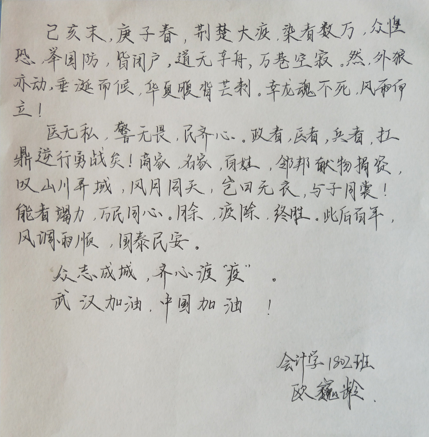 己亥末，庚子春，荆楚大疫，染者数万，众惶
恐，举国防，皆闭户，道无车舟，万巷空寂。然，外狼
亦动，垂涎而候，华夏腹背芒刺。幸龙魂不死，风雨而
立！
医无私，警无畏，民齐心。政者，医者，兵者，扛
鼎逆行勇战矣！商家，名家，百姓，邻邦献物捐资，
叹山川异域，风月同天，岂曰无衣，与子同裳！
能者竭力，万民同心。月余，疫除，终胜。此后百年，
风调雨顺，国泰民安。
众志成城，齐心渡“疫”。
武汉加油，中国加油！
会计学1802班
欧龄